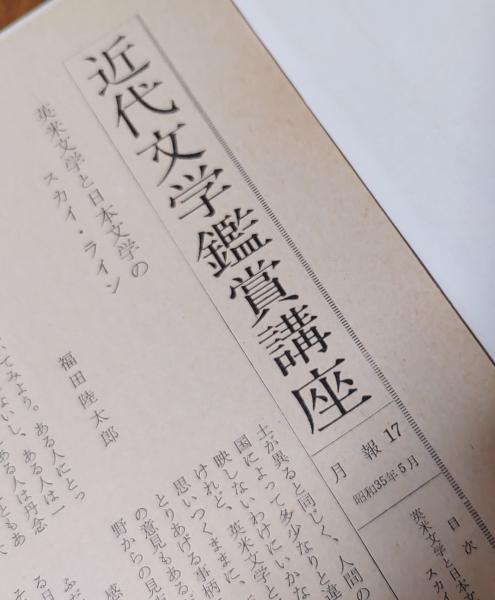 近代文学鑑賞講座
月報 17
昭和35年5月
目次
英米文学と日本文
スカイ
英米文学と日本文学の
スカイ・ライン
福田陸太郎
士が異ると同じく、人間の
国によって多少なりと違
映しないわけにいかな
けれど、英米文学と
思いつくままに、
とりあげる事柄
の意見もある
野からの見
感
てみよう。ある人にとっ
ないし、ある人は一
ある人は丹念
ともあ
ふだ
る日
そ